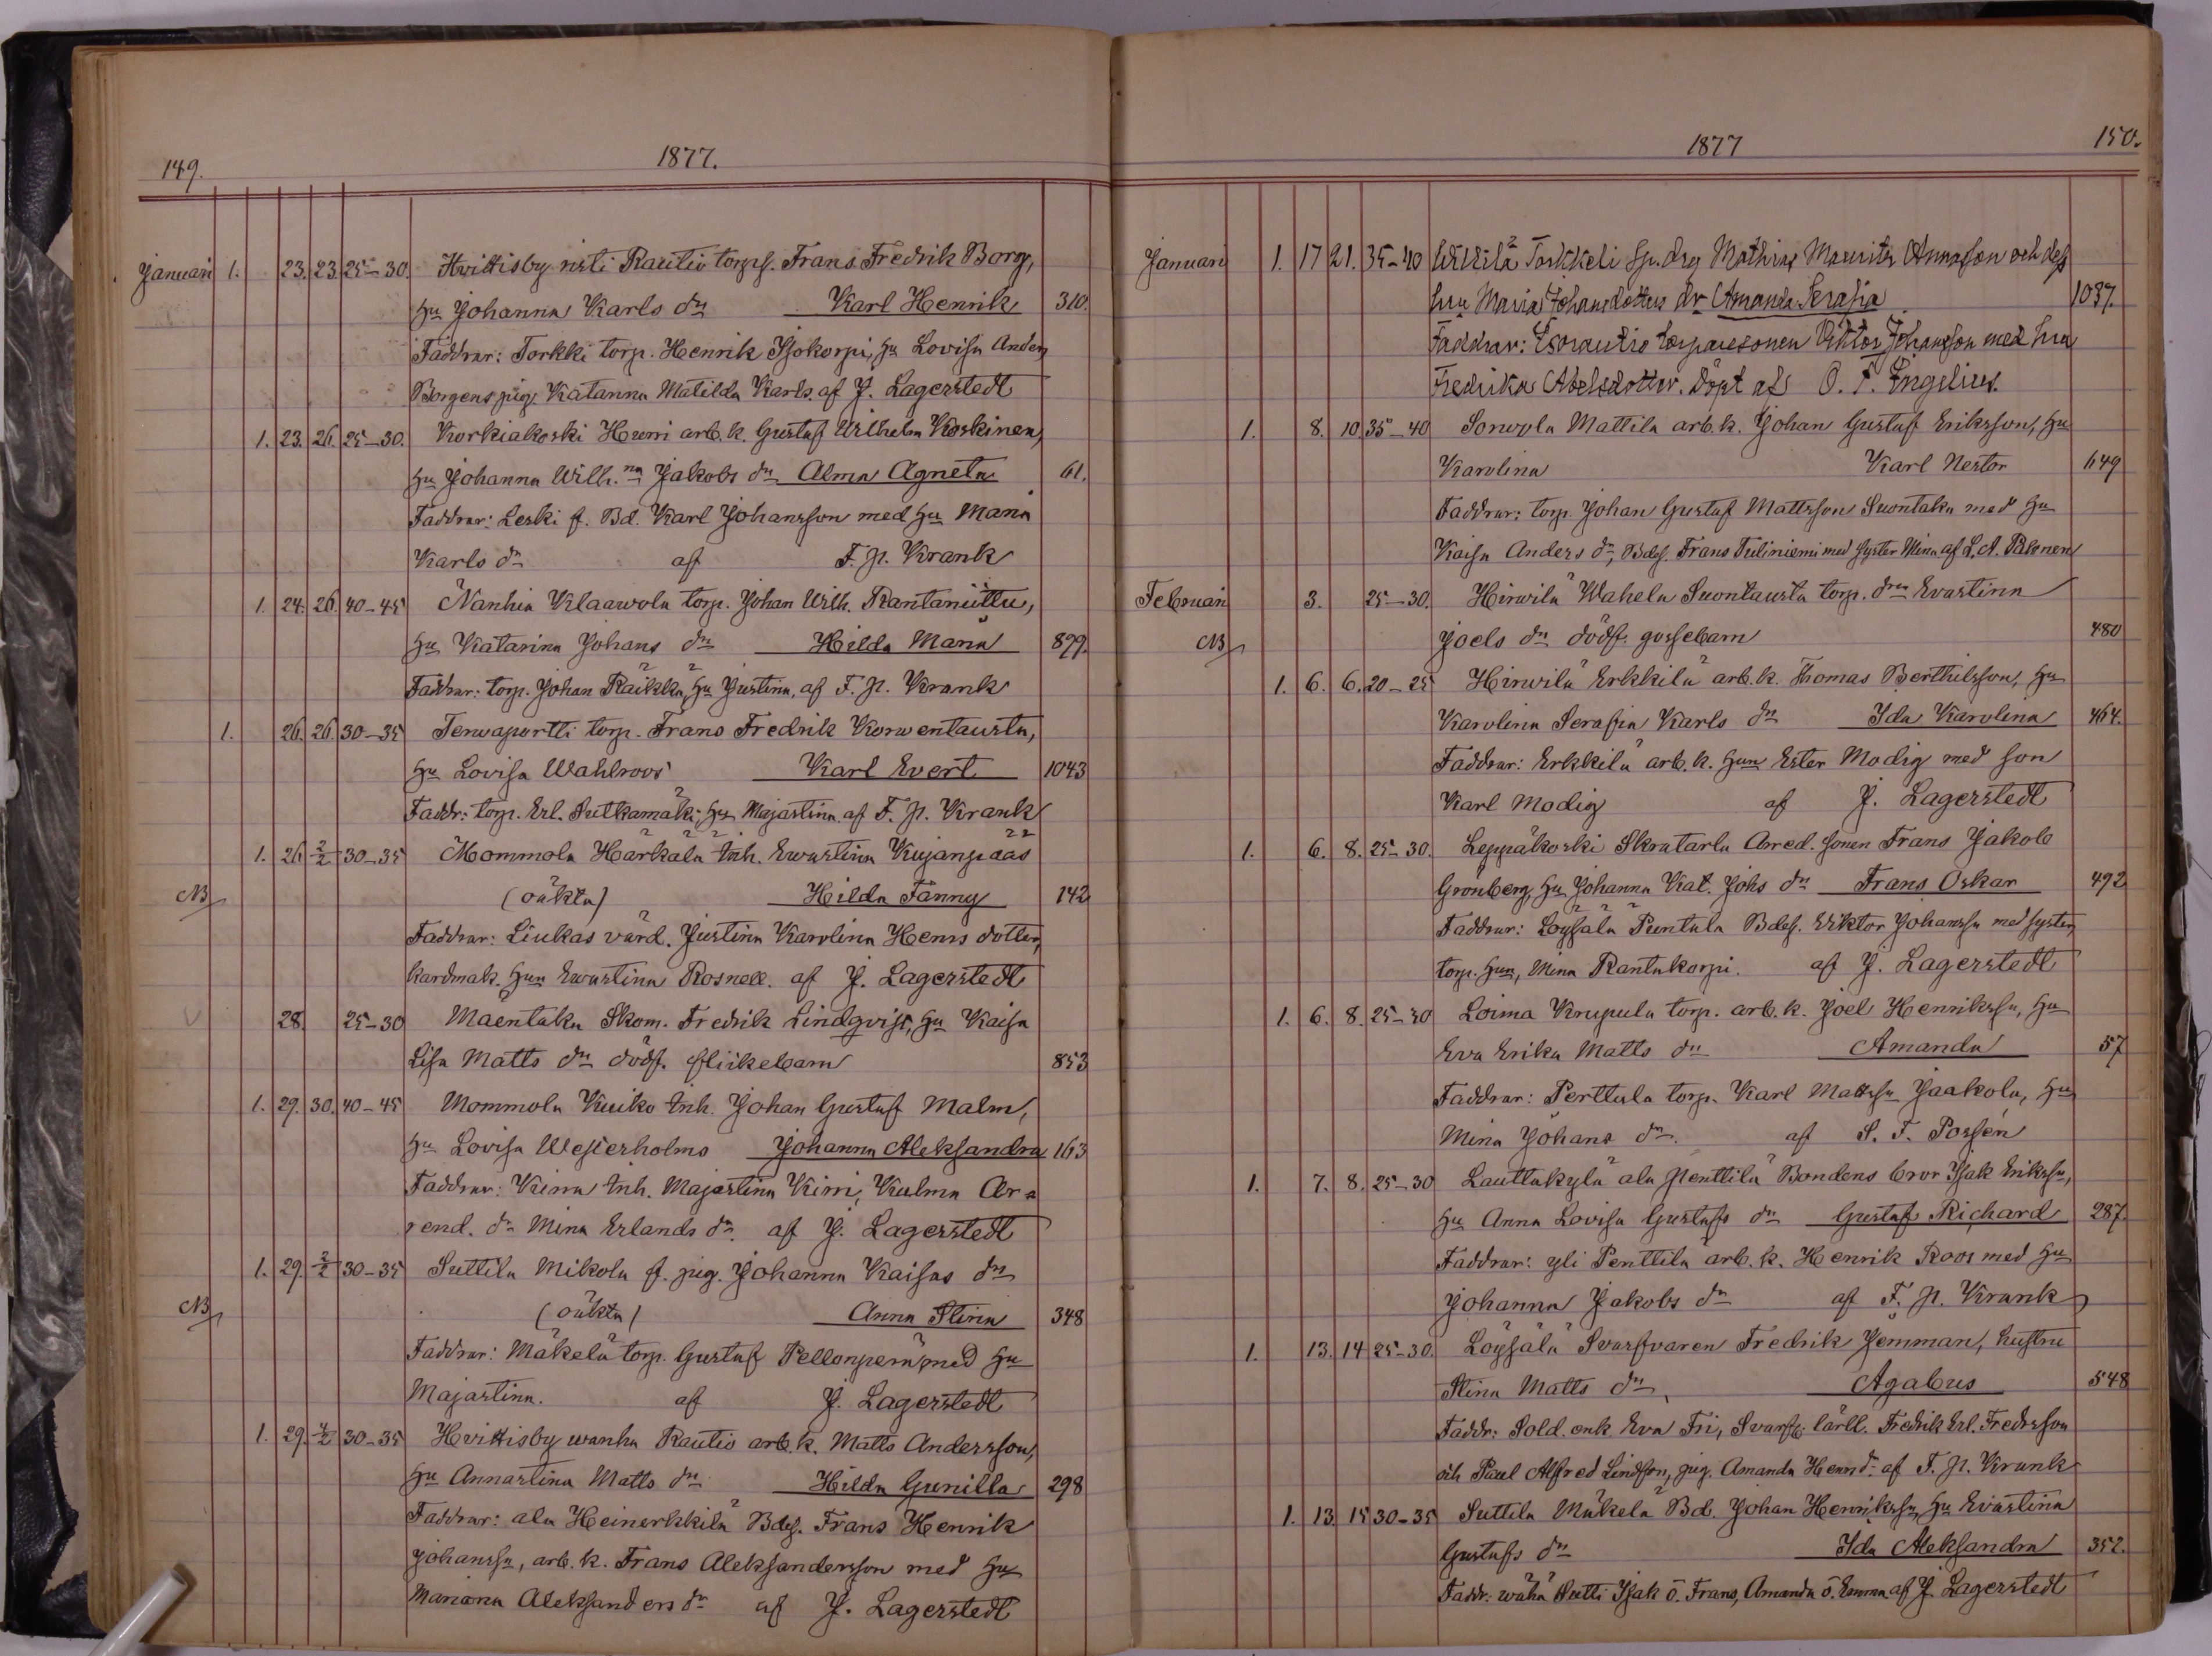 149.
1877.
Januari 1. 23. 23. 25-30. Hvittisby risti Rautio torps. Frans Fredrik Borg,
hu Johanna Karls dr Karl Henrik 310.
Faddrar: Torkki torp. Henrik Isokorpi, hu Lovisa Anders
Borgens pig. Katarina Matilda Karls. af J. Lagerstedt
1. 23. 26. 25-30. Korkiakoski Humi arb.k. Gustaf Wilhelm Koskinen,
hu Johanna Wilh.na Jakobs dr Alma Agneta 61.
Faddrar: Leski f. Bd. Karl Johansson med hu Maria
Karls dr af F. P. Krank
1. 24. 26. 40-45 Nanhia Klaawola torp. Johan Wilh. Rantaniittu,
hu Katarina Johans dr Hilda Maria 899.
Faddrar: torp. Johan Raikka, hu Justina, af F. P. Krank
1. 26. 26. 30-35 Tervaportti torp. Frans Fredrik Korwentausta,
hu Lovisa Wahlroos Karl Evert 1043
Faddr: torp. Erl. Sutkamäki, hu Majastina af F. P. Krank
1. 26 2/2 30-35 Mommola Härkälä inh. Ewastina Kujanpää
NB (oäkta) Hilda Fanny 142
Faddrar: Liukas värd. Justina Karolina Henrs dotter,
kardmak. hun Ewastina Rosnell. af J. Lagerstedt
28. 25-30 Maentaka Skom. Fredrik Lindqvist, hu Kaisa
Lisa Matts dr dödf. flickebarn 853
1. 29. 30. 40-45 Mommola Kuiko inh. Johan Gustaf Malm,
hu Lovisa Westerholms Johanna Aleksandra 163
Faddrar: Kiima inh. Majastina Kiiri, Kulma Ar-
rend. dr Mina Erlands dr. af J. Lagerstedt
1. 29. 2/2 30-35 Suttila Mikola f. pig. Johanna Kaisas dr
NB (oäkta) Anna Stina 348
Faddrar: Mäkelä torp. Gustaf Pellonperä med hu
Majastina. af J. Lagerstedt
1. 29. 4/2 30-35 Hvittisby wanha Rautio arb.k. Matts Andersson,
hu Annastina Matts dr Hilda Gunilla 298
Faddrar: ala Heinerkkilä Bdes. Frans Henrik
Johanssn, arb.k. Frans Aleksandersson med hu
Mariana Aleksanders dr af J. Lagerstedt
1877
150.
Januari 1. 17 21. 35-40 Torkkeli Mathias Maurits Annasson och dess
hru Maria Johansdotters dr Amanda Serafia 1037.
Faddrar: Isorautio torparesonen Viktor Johansson med hru
Fredrika Abelsdotter. Döpt af O. F. Ingelius.
1. 8. 10. 35-40 Sonvola Mattila arb.k. Johan Gustaf Eriksson, hu
Karolina Karl Nestor 649
Faddrar: torp. Johan Gustaf Mattsson Suontaka med hu
Kaisa Anders dr, Bdes. Frans Tuliniemi med syster Mina af L. A. Palonen
Februari 3. 25-30. Hirwilä Wahela Suontausta torp. drn Evastina
NB Joels dr dödf. gossebarn 480
1. 6. 6. 20-25 Hirwilä Erkkilä arb.k. Thomas Berthilsson, hu
Karolina Serafia Karls dr Ida Karolina 464.
Faddrar: Erkkilä arb.k. hun Ester Modig med son
Karl Modig af J. Lagerstedt
1. 6. 8. 25-30. Leppäkoski Skratarla Arred. sonen Frans Jakob
Grönberg, hu Johanna Kat. Johs dr Frans Oskar 492
Faddrar: Loysälä Puntula Bdes. Viktor Johanssn med syster,
torp. hun, Mina Rantakorpi. af J. Lagerstedt
1. 6. 8. 25-30 Loima Krupula torp. arb.k. Joel Henrikssn, hu
Eva Erika Matts dr Amanda 57
Faddrar: Perttula torp. Karl Mattssn Jaakola, hu
Mina Johans dr. af S. F. Possén
1. 7. 8. 25-30 Lauttakylä ala Penttilä Bondens bror Isak Erikssn,
hu Anna Lovisa Gustafs dr Gustaf Richard 287.
Faddrar: yli Penttila arb.k. Henrik Roos med hu
Johanna Jakobs dr af F. P. Krank
1. 13. 14 25-30. Löysälä Svarfvaren Fredrik Jemman, hustru
Stina Matts dr, Agabus 548
Faddr: Sold. enk. Eva Fri, Svarfv. lärll. Fredrik Erl. Fredrsson
och Paul Alfred Lindfon, pig. Amanda Henr dr. af F. P. Krank
1. 13. 15 30-35 Suttila Mäkelä Bd. Johan Henrikssn, hu Evastina
Gustafs dr Ida Aleksandra 352.
Faddr: wähä Sutti Isak o. Frans, Amanda o. Emma af J. Lagerstedt